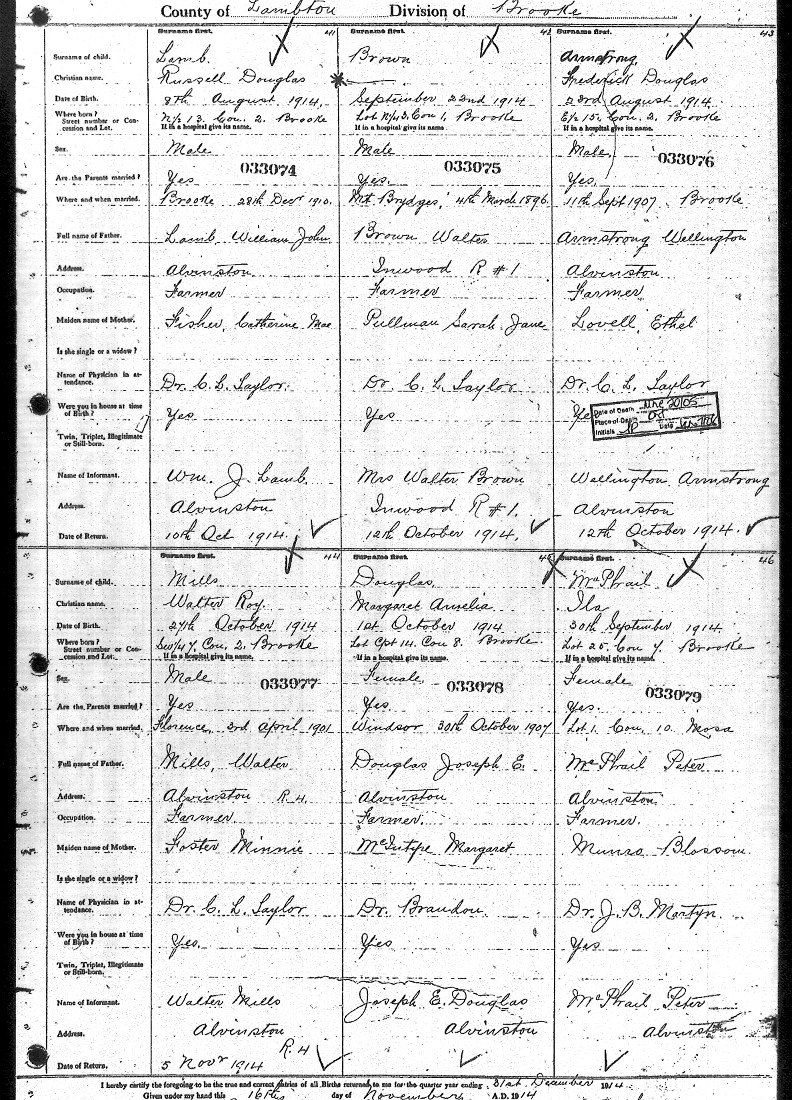 County of Lambton Division of Brooke
Surname first. 41 Surname first. 42 Surname first. 43
Surname of child. Lamb. Brown Armstrong
Christian name. Russell Douglas Frederick Douglas
Date of Birth. 8th August 1914. September 22nd 1914 23rd August 1914
Where born? Street number or Concession and Lot. N/2 13. Con. 2. Brooke Lot N/2 3, Con 1, Brooke E/2 15, Con. 2, Brooke
If in a hospital give its name. If in a hospital give its name. If in a hospital give its name.
Sex. Male Male Male
033074 033075 033076
Are the Parents married? Yes Yes. Yes.
Where and when married. Brooke 28th Decr 1910. Mt Brydges, 4th March 1896 11th Sept 1907. Brooke
Full name of Father. Lamb William John Brown Walter Armstrong Wellington
Address. Alvinston Inwood R #1 Alvinston
Occupation. Farmer Farmer Farmer
Maiden name of Mother. Fisher, Catherine Mae Pullman Sarah Jane Lovell, Ethel
Is she single or a widow?
Name of Physician in attendance. Dr. C. L. Taylor. Dr C. L. Taylor Dr. C. L. Taylor
Were you in house at time of Birth? Yes Yes Ye
Date of Death
Place of Death
Initials Date
Twin, Triplet, Illegitimate or Still-born.
Name of Informant. Wm. J. Lamb. Mrs Walter Brown Wellington Armstrong
Address. Alvinston Inwood R #1. Alvinston
Date of Return. 10th Oct 1914. 12th October 1914. 12th October 1914.
Surname first. 44 Surname first. 45 Surname first. 46
Surname of child. Mills Douglas. McPhail
Christian name. Walter Roy. Margaret Amelia. Ila
Date of Birth. 27th October 1914 1st October 1914 30th September 1914
Where born? Street number or Concession and Lot. 7, Con. 2. Brooke Lot Cpt 14. Con 8. Brooke Lot 25. Con 7. Brooke
If in a hospital give its name. If in a hospital give its name. If in a hospital give its name.
Sex. Male Female Female
033077 033078 033079
Are the Parents married? Yes Yes Yes.
Where and when married. Florence, 3rd April 1901 Windsor 30th October 1907 Lot 1. Con. 10. Mosa
Full name of Father. Mills, Walter Douglas Joseph E. McPhail Peter
Address. Alvinston R.4 Alvinston Alvinston
Occupation. Farmer. Farmer. Farmer.
Maiden name of Mother. Foster Minnie McIntype Margaret Munro Blossom
Is she single or a widow?
Name of Physician in attendance. Dr. C. L. Taylor Dr. Brandon. Dr. J. B. Martyn.
Were you in house at time of Birth? Yes. Yes Yes
Twin, Triplet, Illegitimate or Still-born.
Name of Informant. Walter Mills Joseph E. Douglas McPhail Peter
Address. Alvinston R.4 Alvinston Alvinston
Date of Return. 5 Novr 1914
I hereby certify the foregoing to be the true and correct entries of all Births returned to me for the quarter year ending 31st December 1914
Given under my hand this 16th day of November A.D. 1914